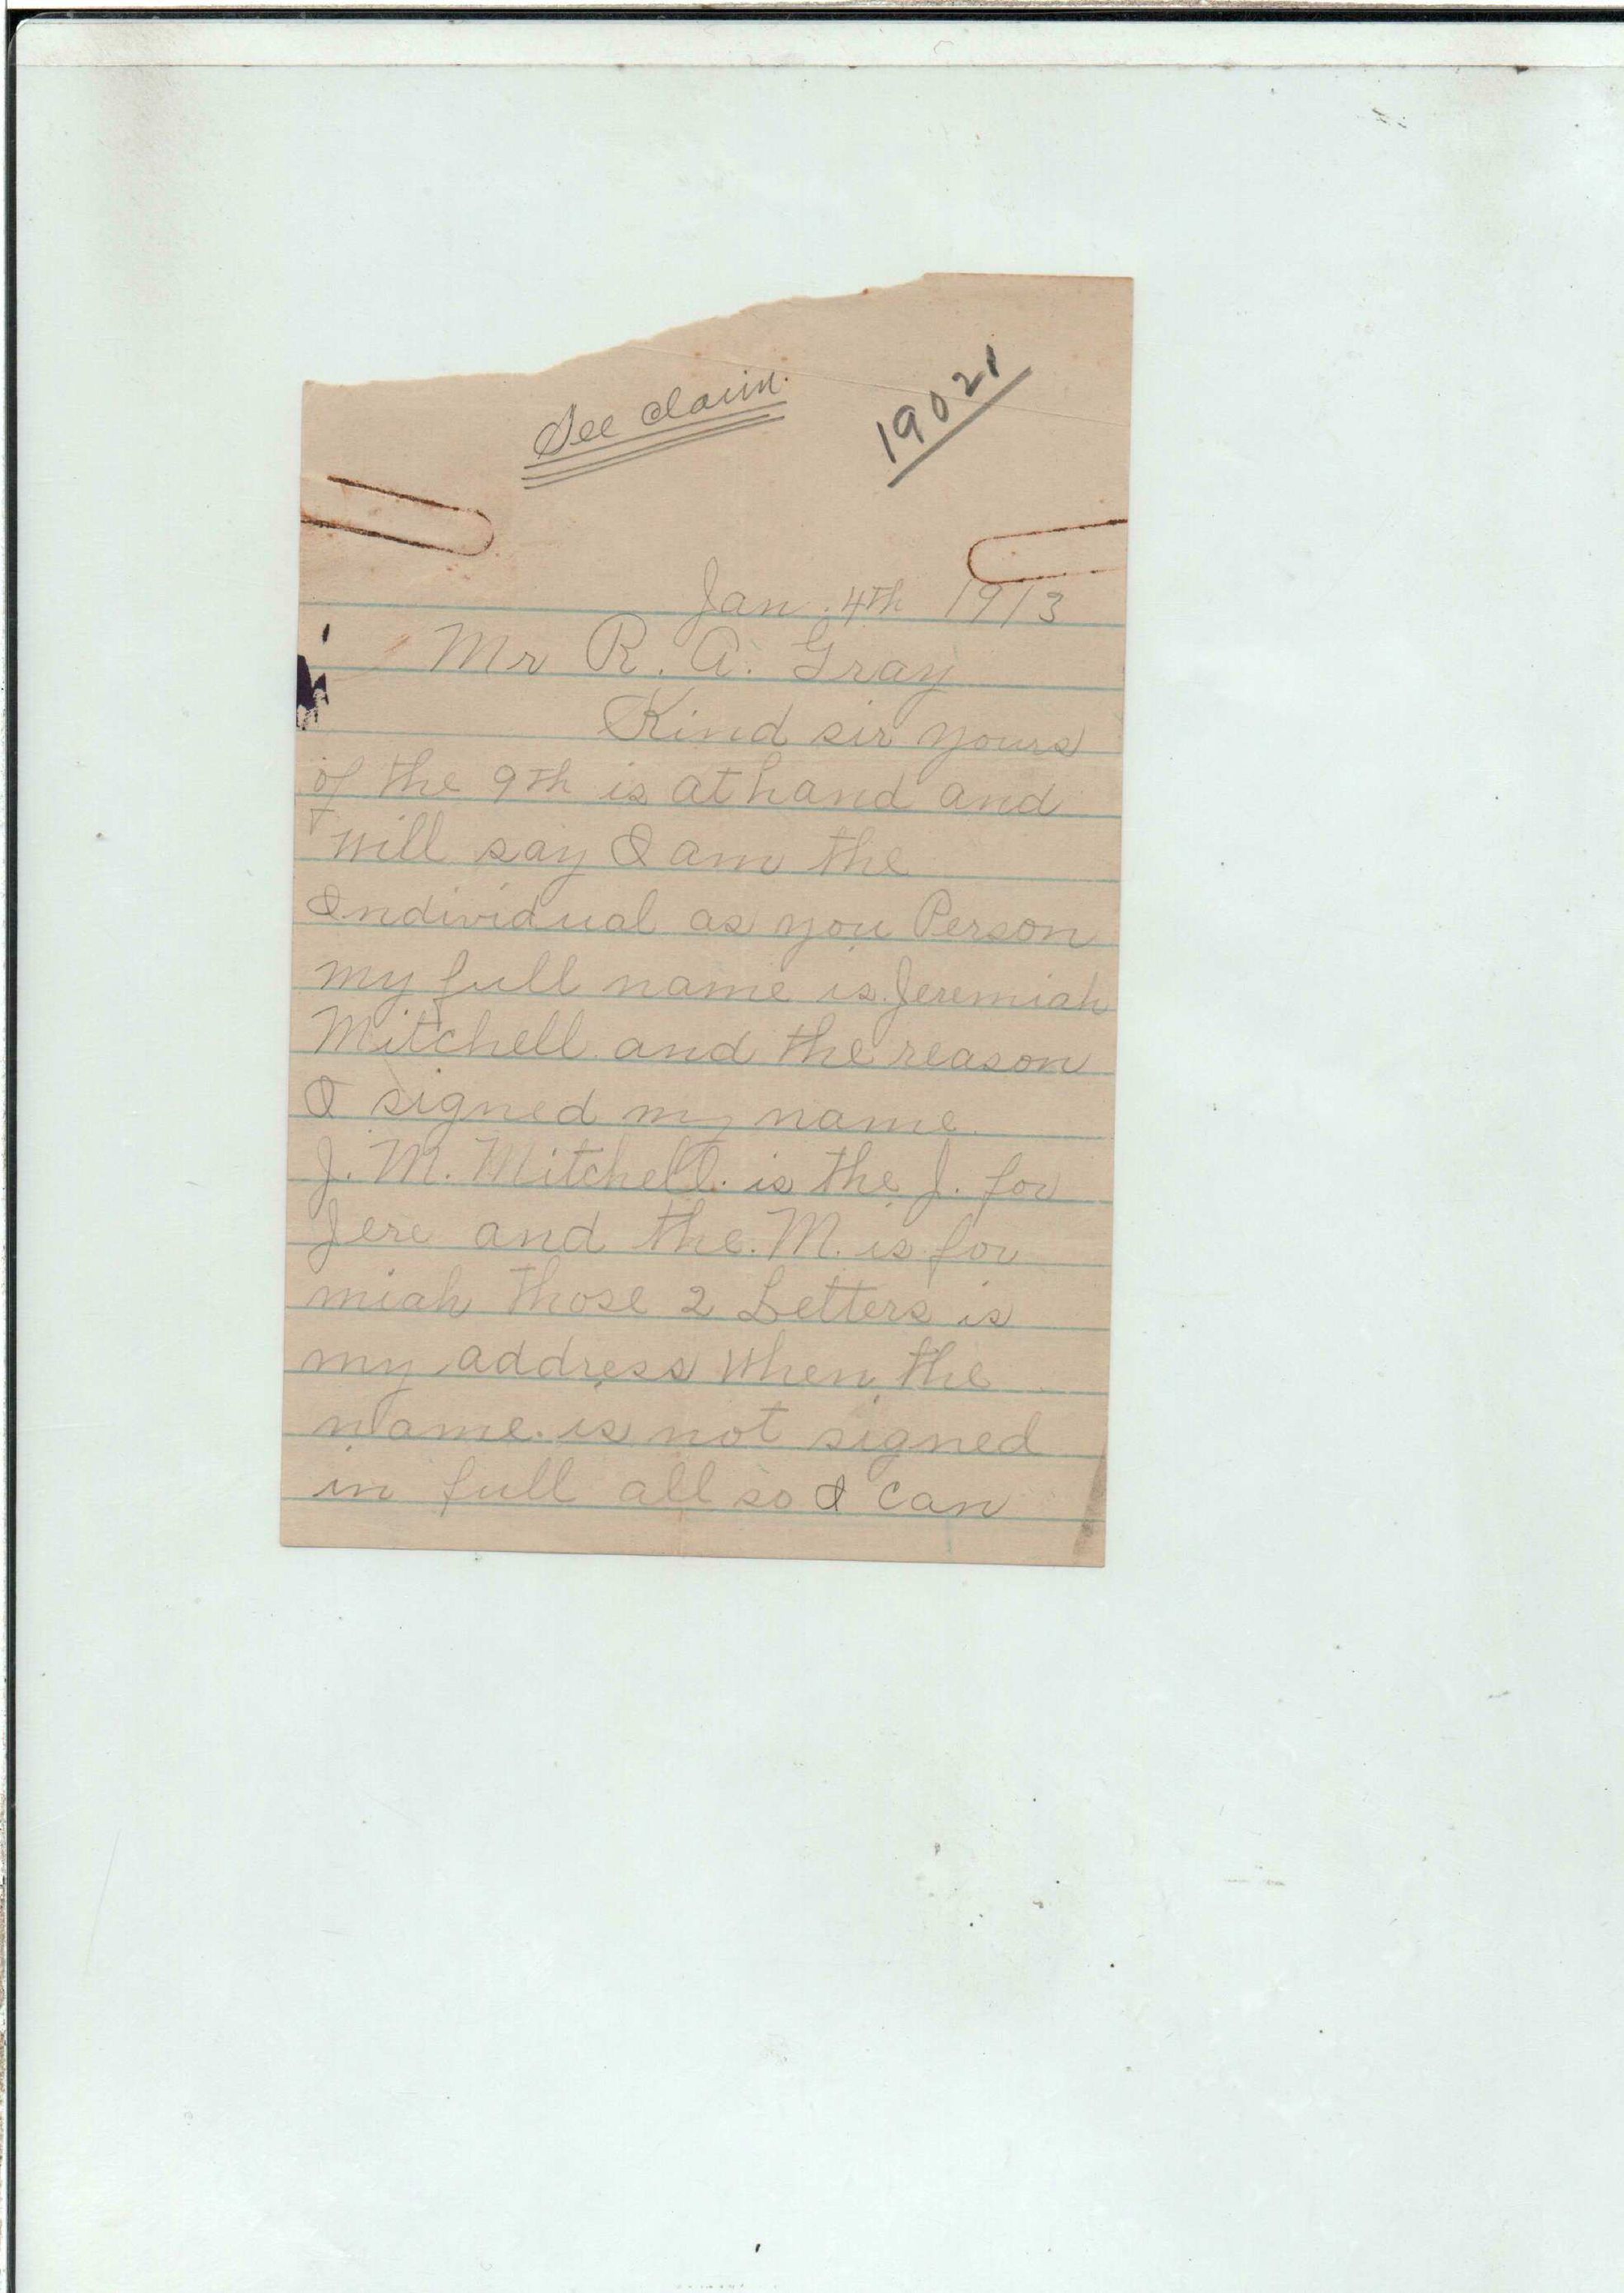 See claim.
19021
Jan. 4th 1913
Mr R. A. Gray
Kind sir yours
of the 9th is at hand and
will say I am the
Individual as you Person
my full name is Jeremiah
Mitchell and the reason
I signed my name
J. M. Mitchell. is the J. for
Jere and the. M. is for
miah those 2 Letters is
my address when the
name. is not signed
in full all so I can